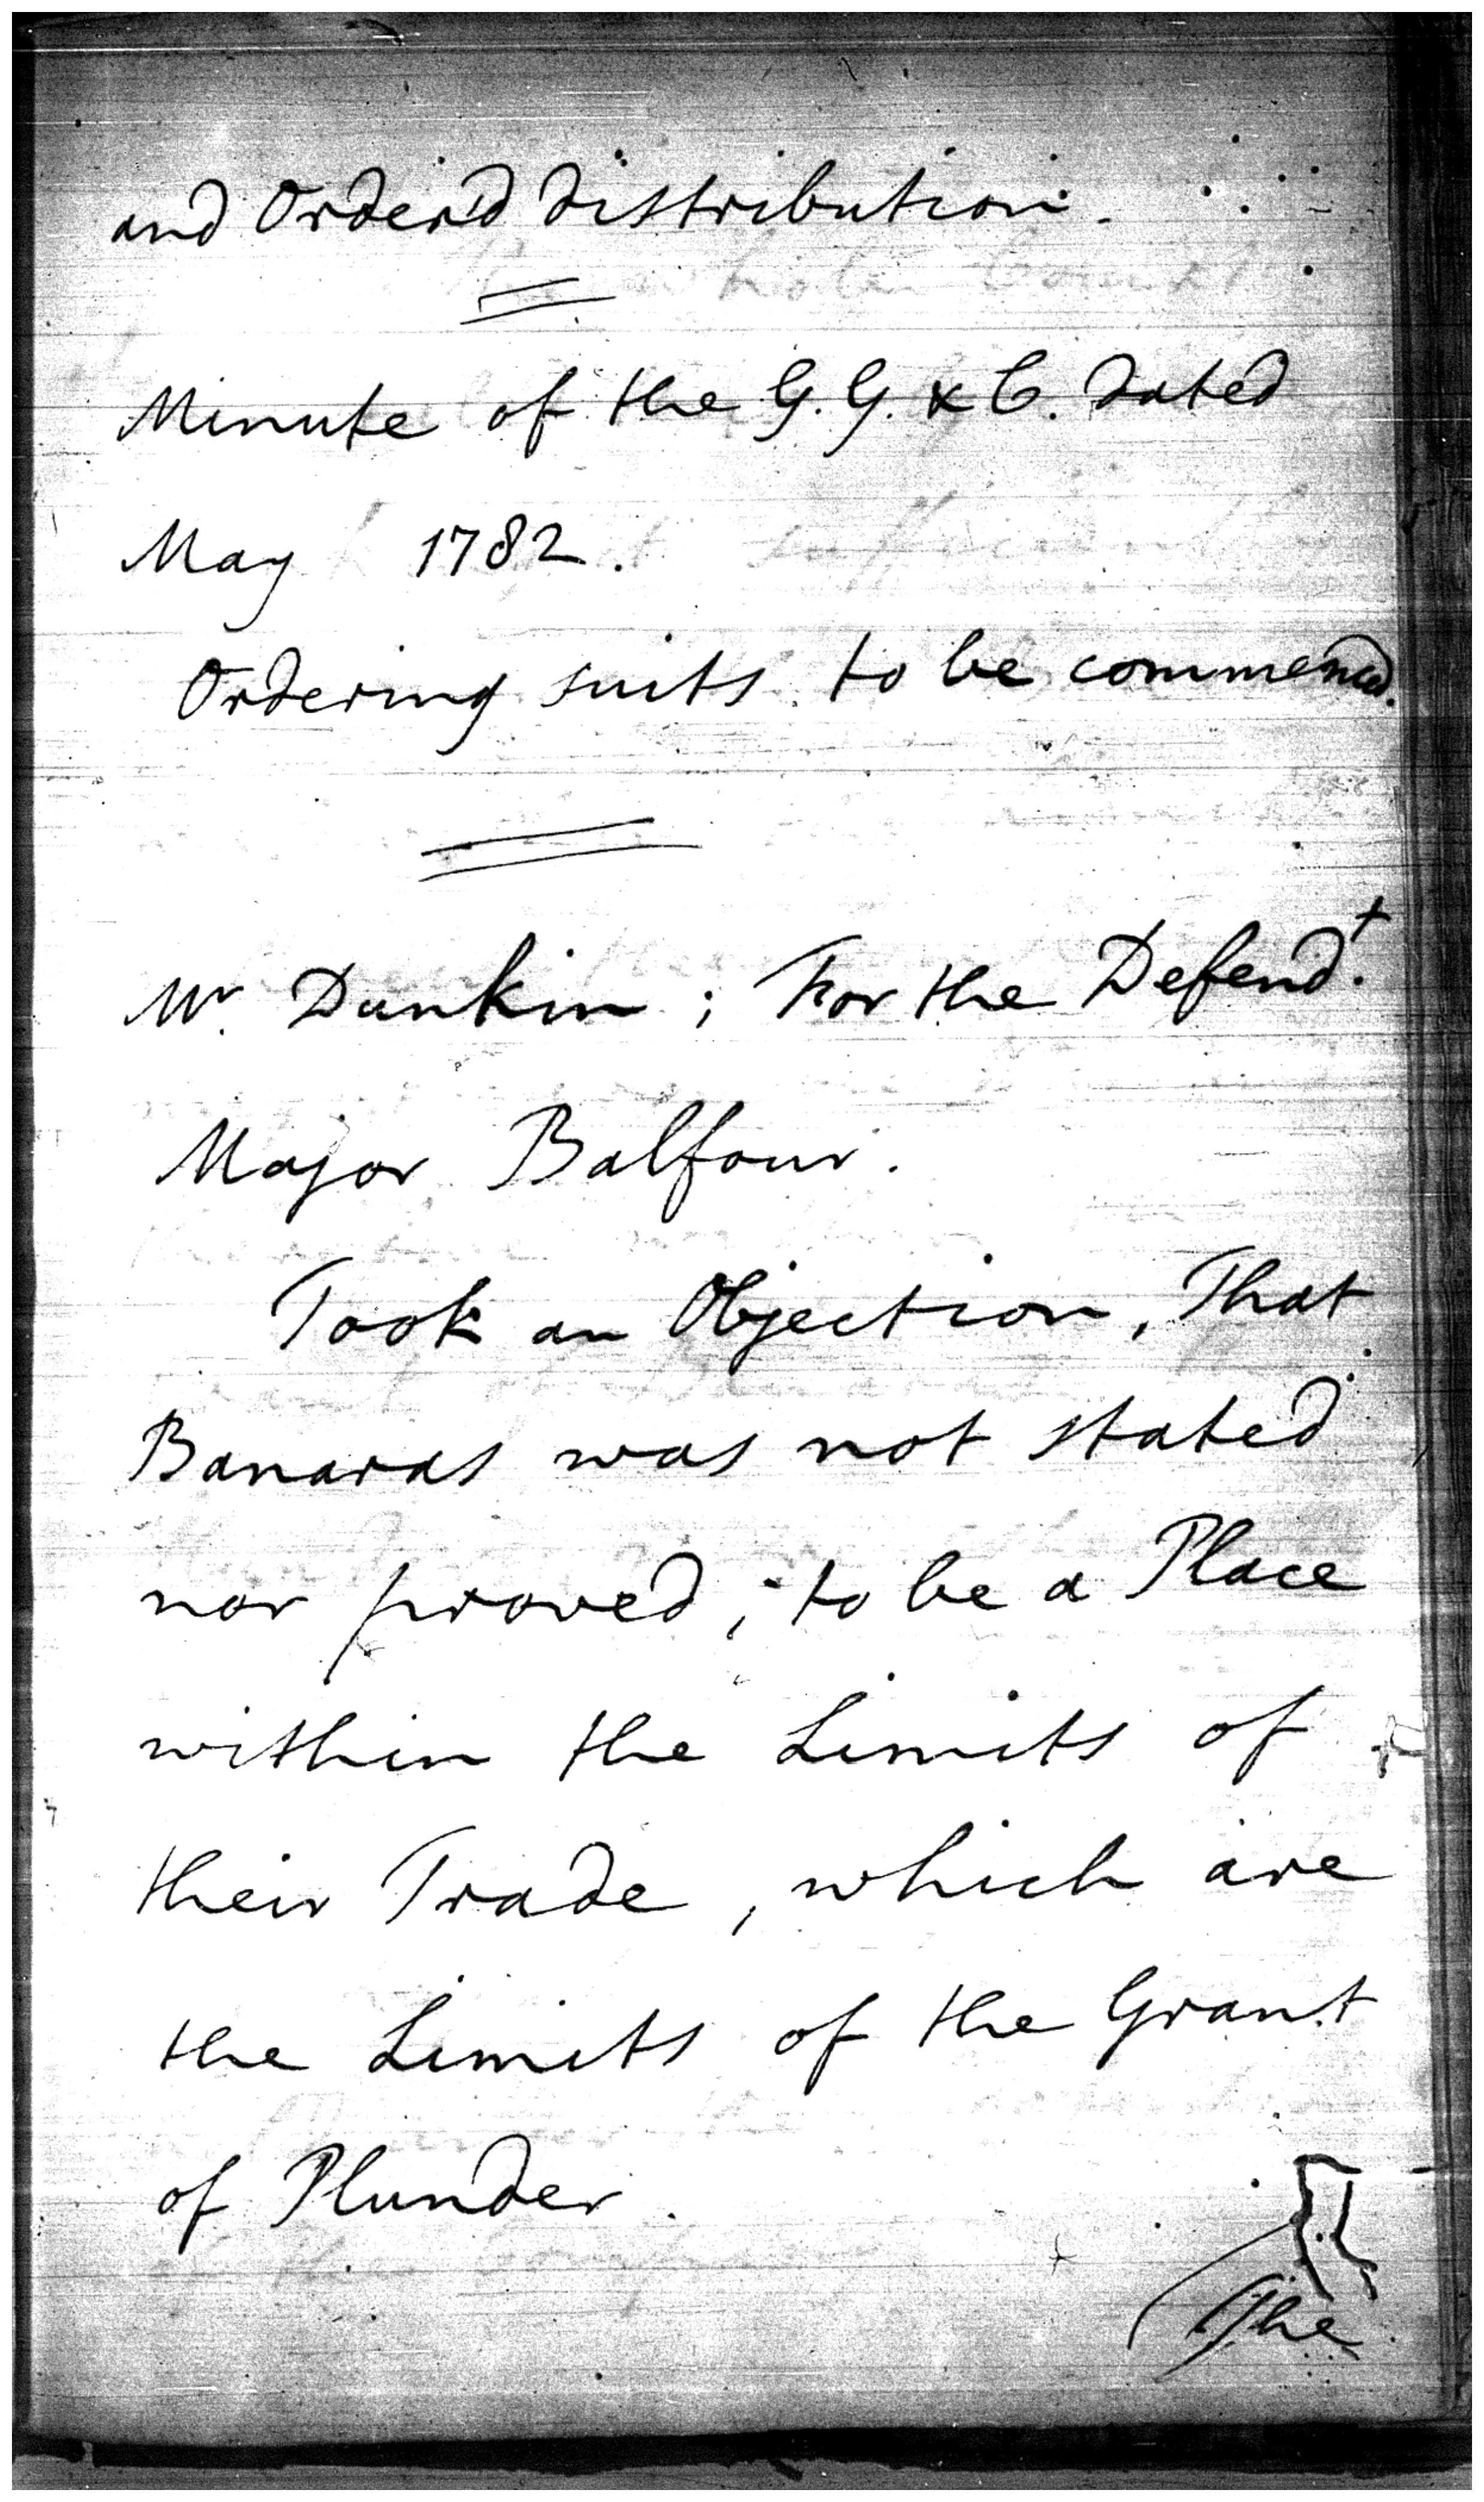 and Order'd distribution.
Minute of the G. G. & C. dated
May 1782.
Ordering suits to be commenced.
Mr. Dunkin; For the Defend.t
Major Balfour.
Took an Objection, That
Banaras was not stated
nor proved, to be a Place
within the Limits of
their Trade, which are
the Limits of the Grant
of Plunder.
The